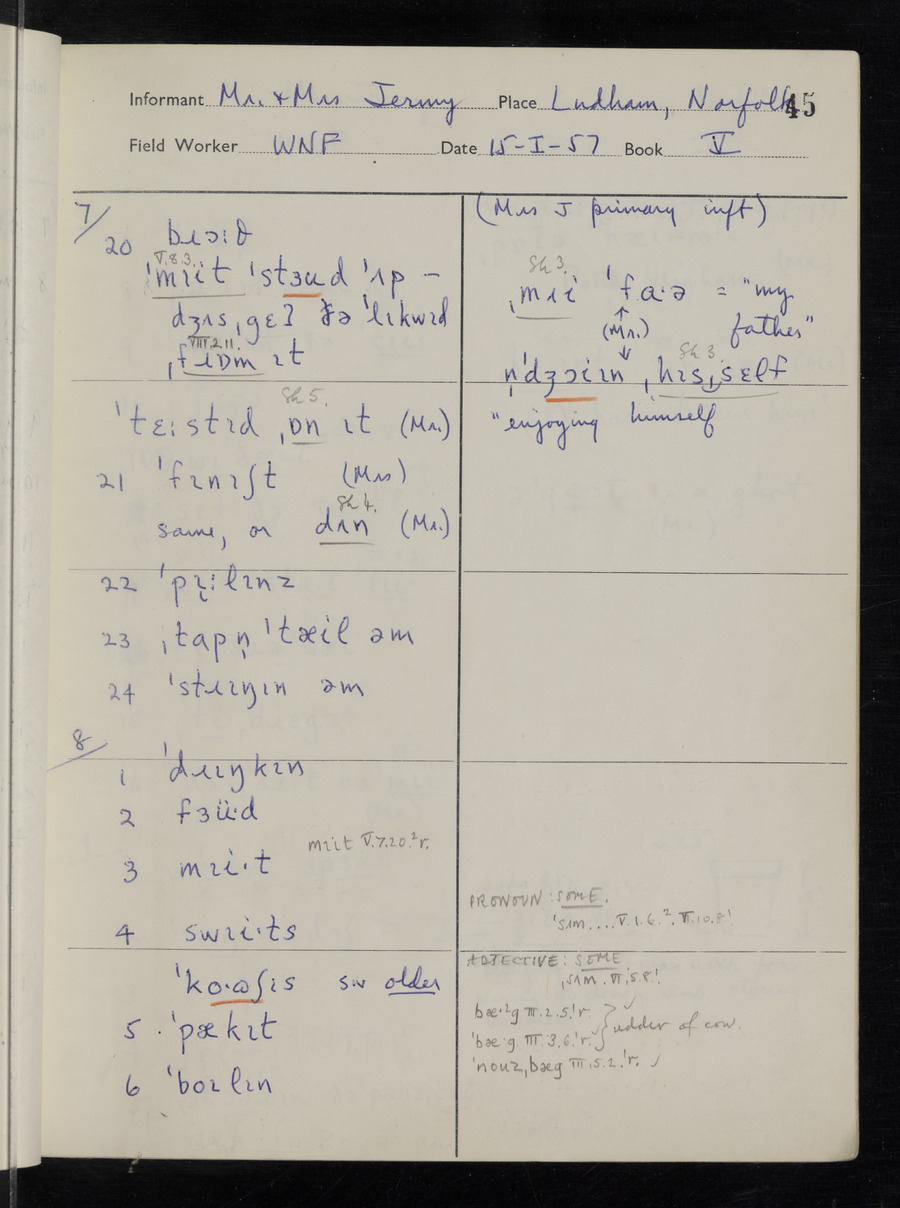 Informant Mr. & Mrs Jermy Place Ludham, Norfolk 45
Field Worker WNF Date 15-I-57 Book V
(Mrs J primary inft)
7/
20 bɹɔːθ
V.8.3.
ˈmɪit ˈstɜud ˈʌp –
VIII.2.11.
ˌfɹɒm ɪt
Sh 5.
ˈtɛːstɪd ˌɒn ɪt (Mr.)
21 ˈfɪnɪʃt (Mrs)
Sh 4.
same, or dʌn (Mr.)
22 ˈpɪːlɪnz
23 ˌtapn̩ ˈtæil əm
24 ˈstɹɪŋɪn əm
8/
1 ˈdɹɪŋkɪn
2 fɜüːd
3 mɪi·t mɪit V.7.20.²r.
4 swɪi·ts
sw older
5 ˈpækɪt
6 ˈbɔɪlɪn
Sh 3.
= "my
(Mr.) father"
Sh 3
ˌhɪsˌsɛlf
"enjoying himself
PRONOUN: SOME.
ˈsʌm .... V.1.6.² VI.10.8.¹
ADJECTIVE: SOME
ˌsʌm. VI.5.8.¹
bæ·²g III.2.5.¹r.
ˈbæ·g III.3.6.¹r. } udder of cow.
III.5.2.¹r.